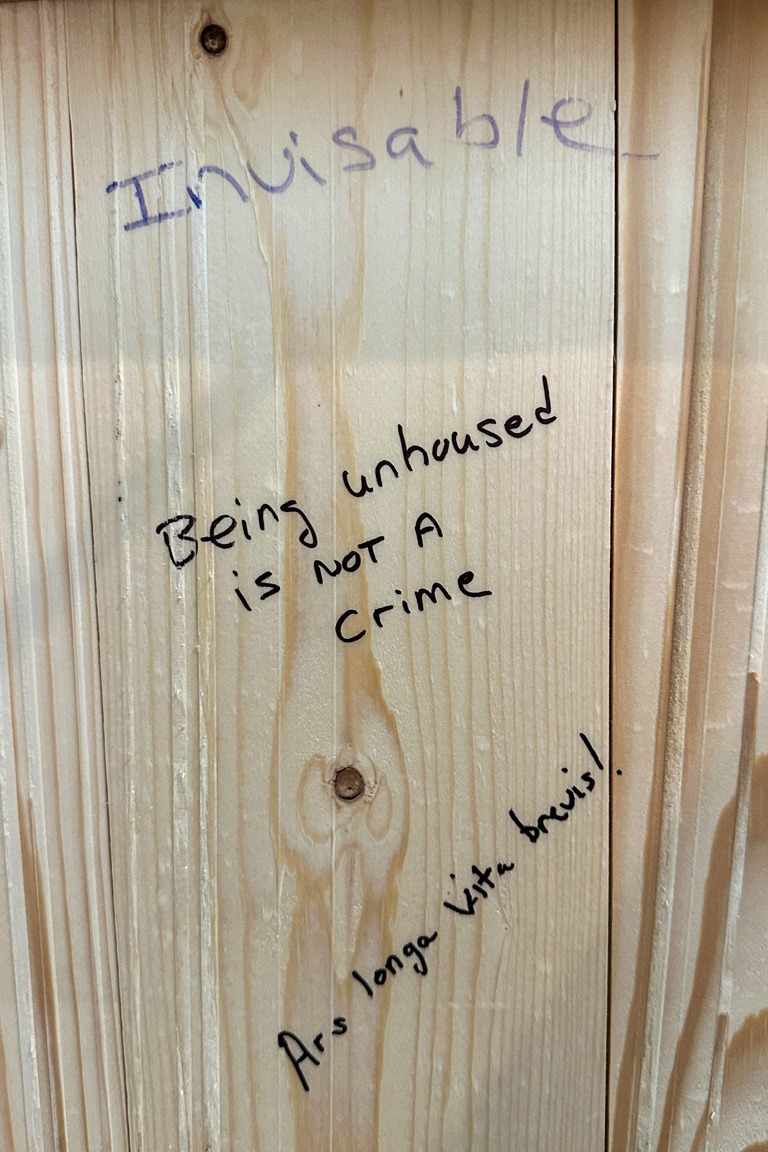 Invisable
Being unhoused
is NOT A
crime
Ars longa vita brevis!